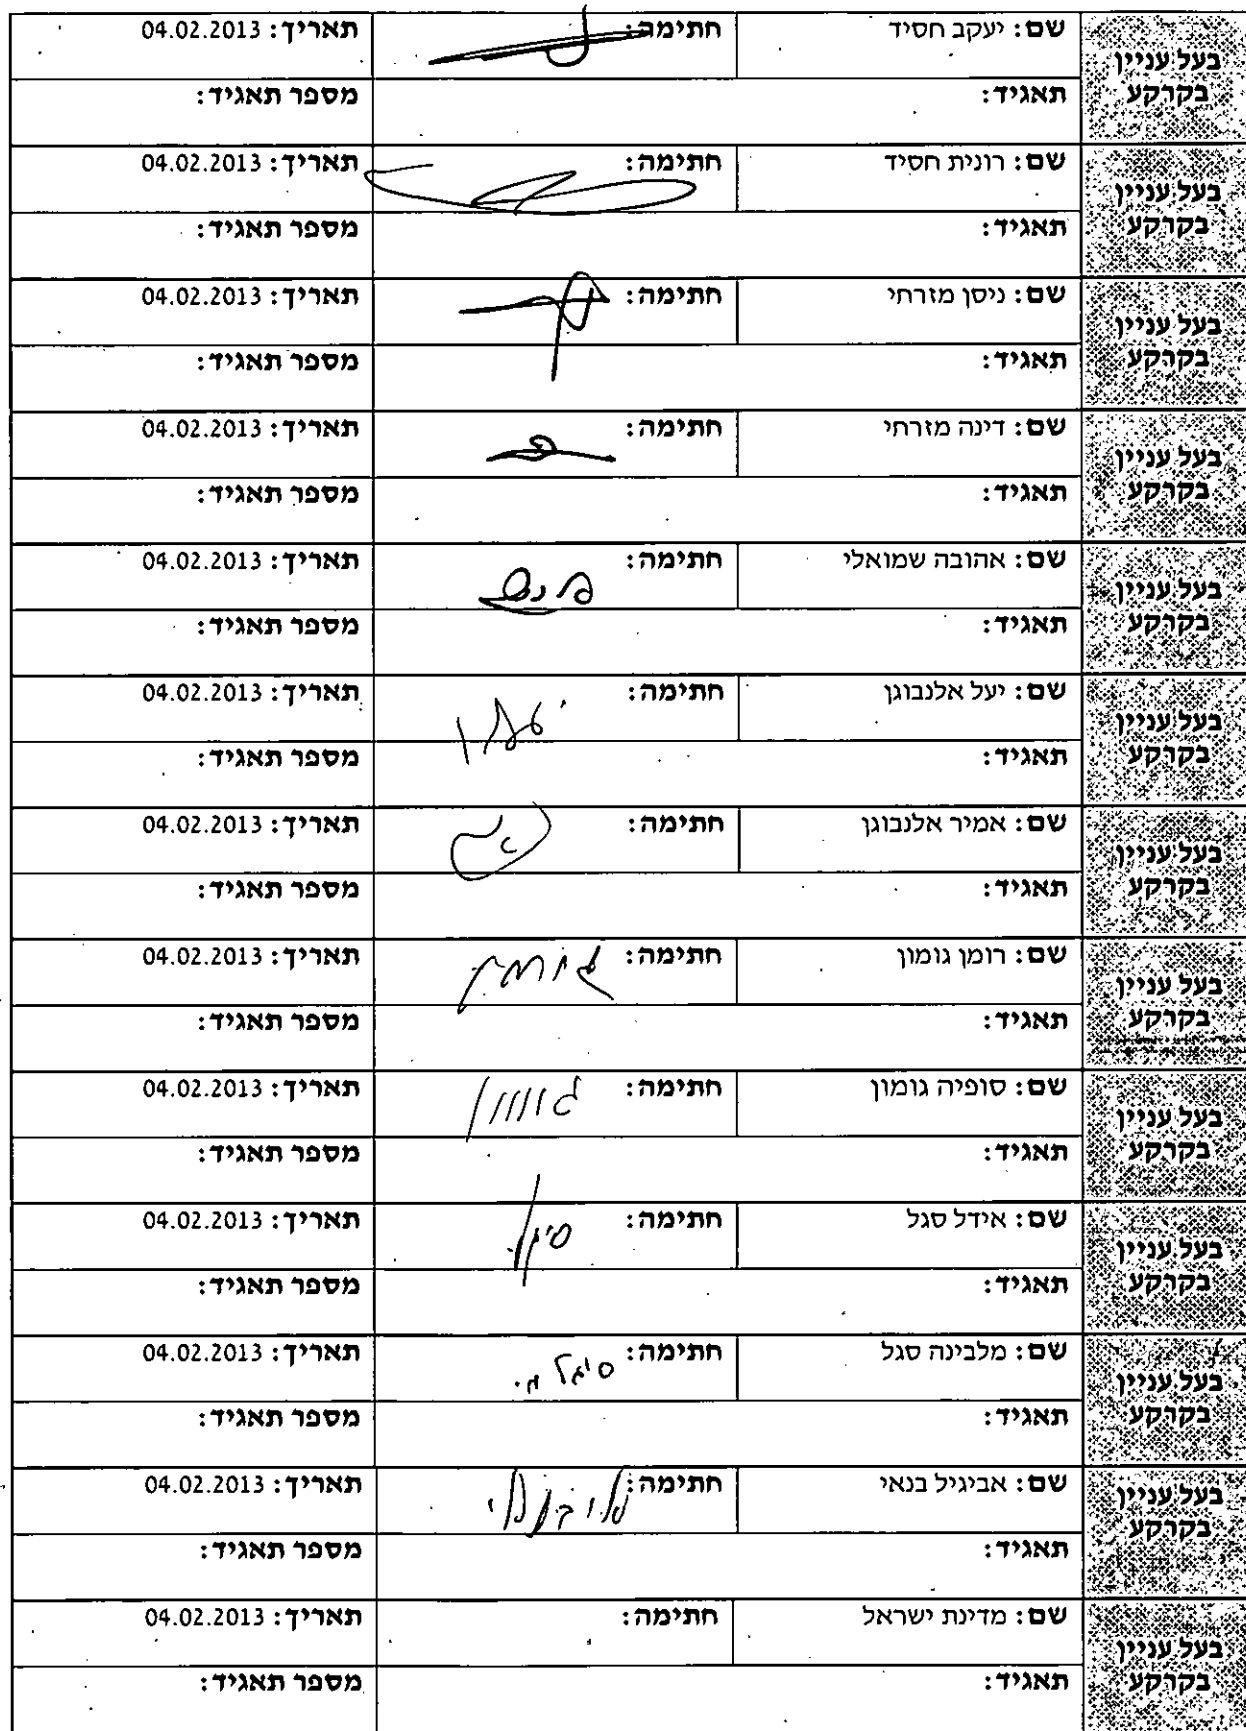 בעל עניין בקרקע שם: יעקב חסיד חתימה: תאריך: 04.02.2013
תאגיד: מספר תאגיד:
בעל עניין בקרקע שם: רונית חסיד חתימה: תאריך: 04.02.2013
תאגיד: מספר תאגיד:
בעל עניין בקרקע שם: ניסן מזרחי חתימה: תאריך: 04.02.2013
תאגיד: מספר תאגיד:
בעל עניין בקרקע שם: דינה מזרחי חתימה: תאריך: 04.02.2013
תאגיד: מספר תאגיד:
בעל עניין בקרקע שם: אהובה שמואלי חתימה: תאריך: 04.02.2013
תאגיד: מספר תאגיד:
בעל עניין בקרקע שם: יעל אלנבוגן חתימה: תאריך: 04.02.2013
תאגיד: מספר תאגיד:
בעל עניין בקרקע שם: אמיר אלנבוגן חתימה: תאריך: 04.02.2013
תאגיד: מספר תאגיד:
בעל עניין בקרקע שם: רומן גומון חתימה: גומון תאריך: 04.02.2013
תאגיד: מספר תאגיד:
בעל עניין בקרקע שם: סופיה גומון חתימה: גומון תאריך: 04.02.2013
תאגיד: מספר תאגיד:
בעל עניין בקרקע שם: אידל סגל חתימה: תאריך: 04.02.2013
תאגיד: מספר תאגיד:
בעל עניין בקרקע שם: מלבינה סגל חתימה: סיגל מ. תאריך: 04.02.2013
תאגיד: מספר תאגיד:
בעל עניין בקרקע שם: אביגיל בנאי חתימה: תאריך: 04.02.2013
תאגיד: מספר תאגיד:
בעל עניין בקרקע שם: מדינת ישראל חתימה: תאריך: 04.02.2013
תאגיד: מספר תאגיד: